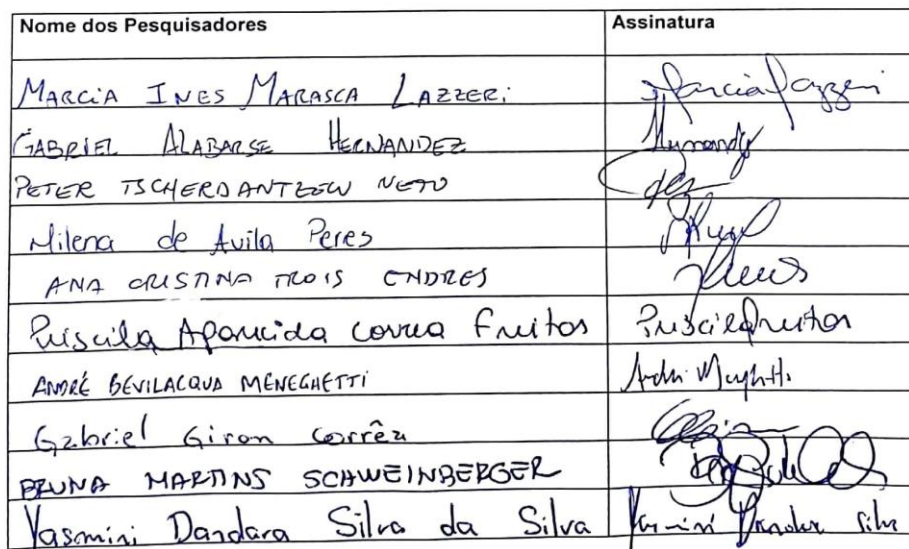 Nome dos Pesquisadores Assinatura
MARCIA INES MARASCA LAZZERI Marcia Lazzeri
GABRIEL ALABARSE HERNANDEZ Hernandez
PETER TSCHERDANTZEW NETO
Milena de Avila Peres
ANA CRISTINA TROIS ENDRES
Priscila Aparecida correa Freitas Priscila Freitas
ANDRÉ BEVILACQUA MENEGHETTI
Gabriel Giron Corrêa
BRUNA MARTINS SCHWEINBERGER
Yasmini Dandara Silva da Silva Yasmini Dandara Silva